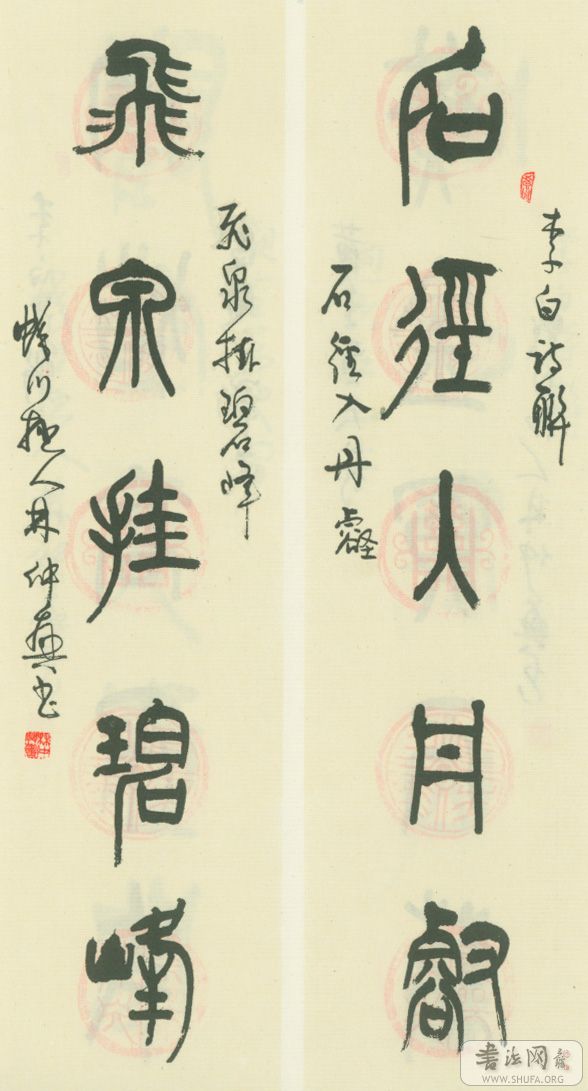 李白詩聯
石徑入丹㕡
石徑入丹壑
飛泉挂碧峰
飛泉掛碧峰
人林仲興書
書法网
WWW.SHUFA.ORG